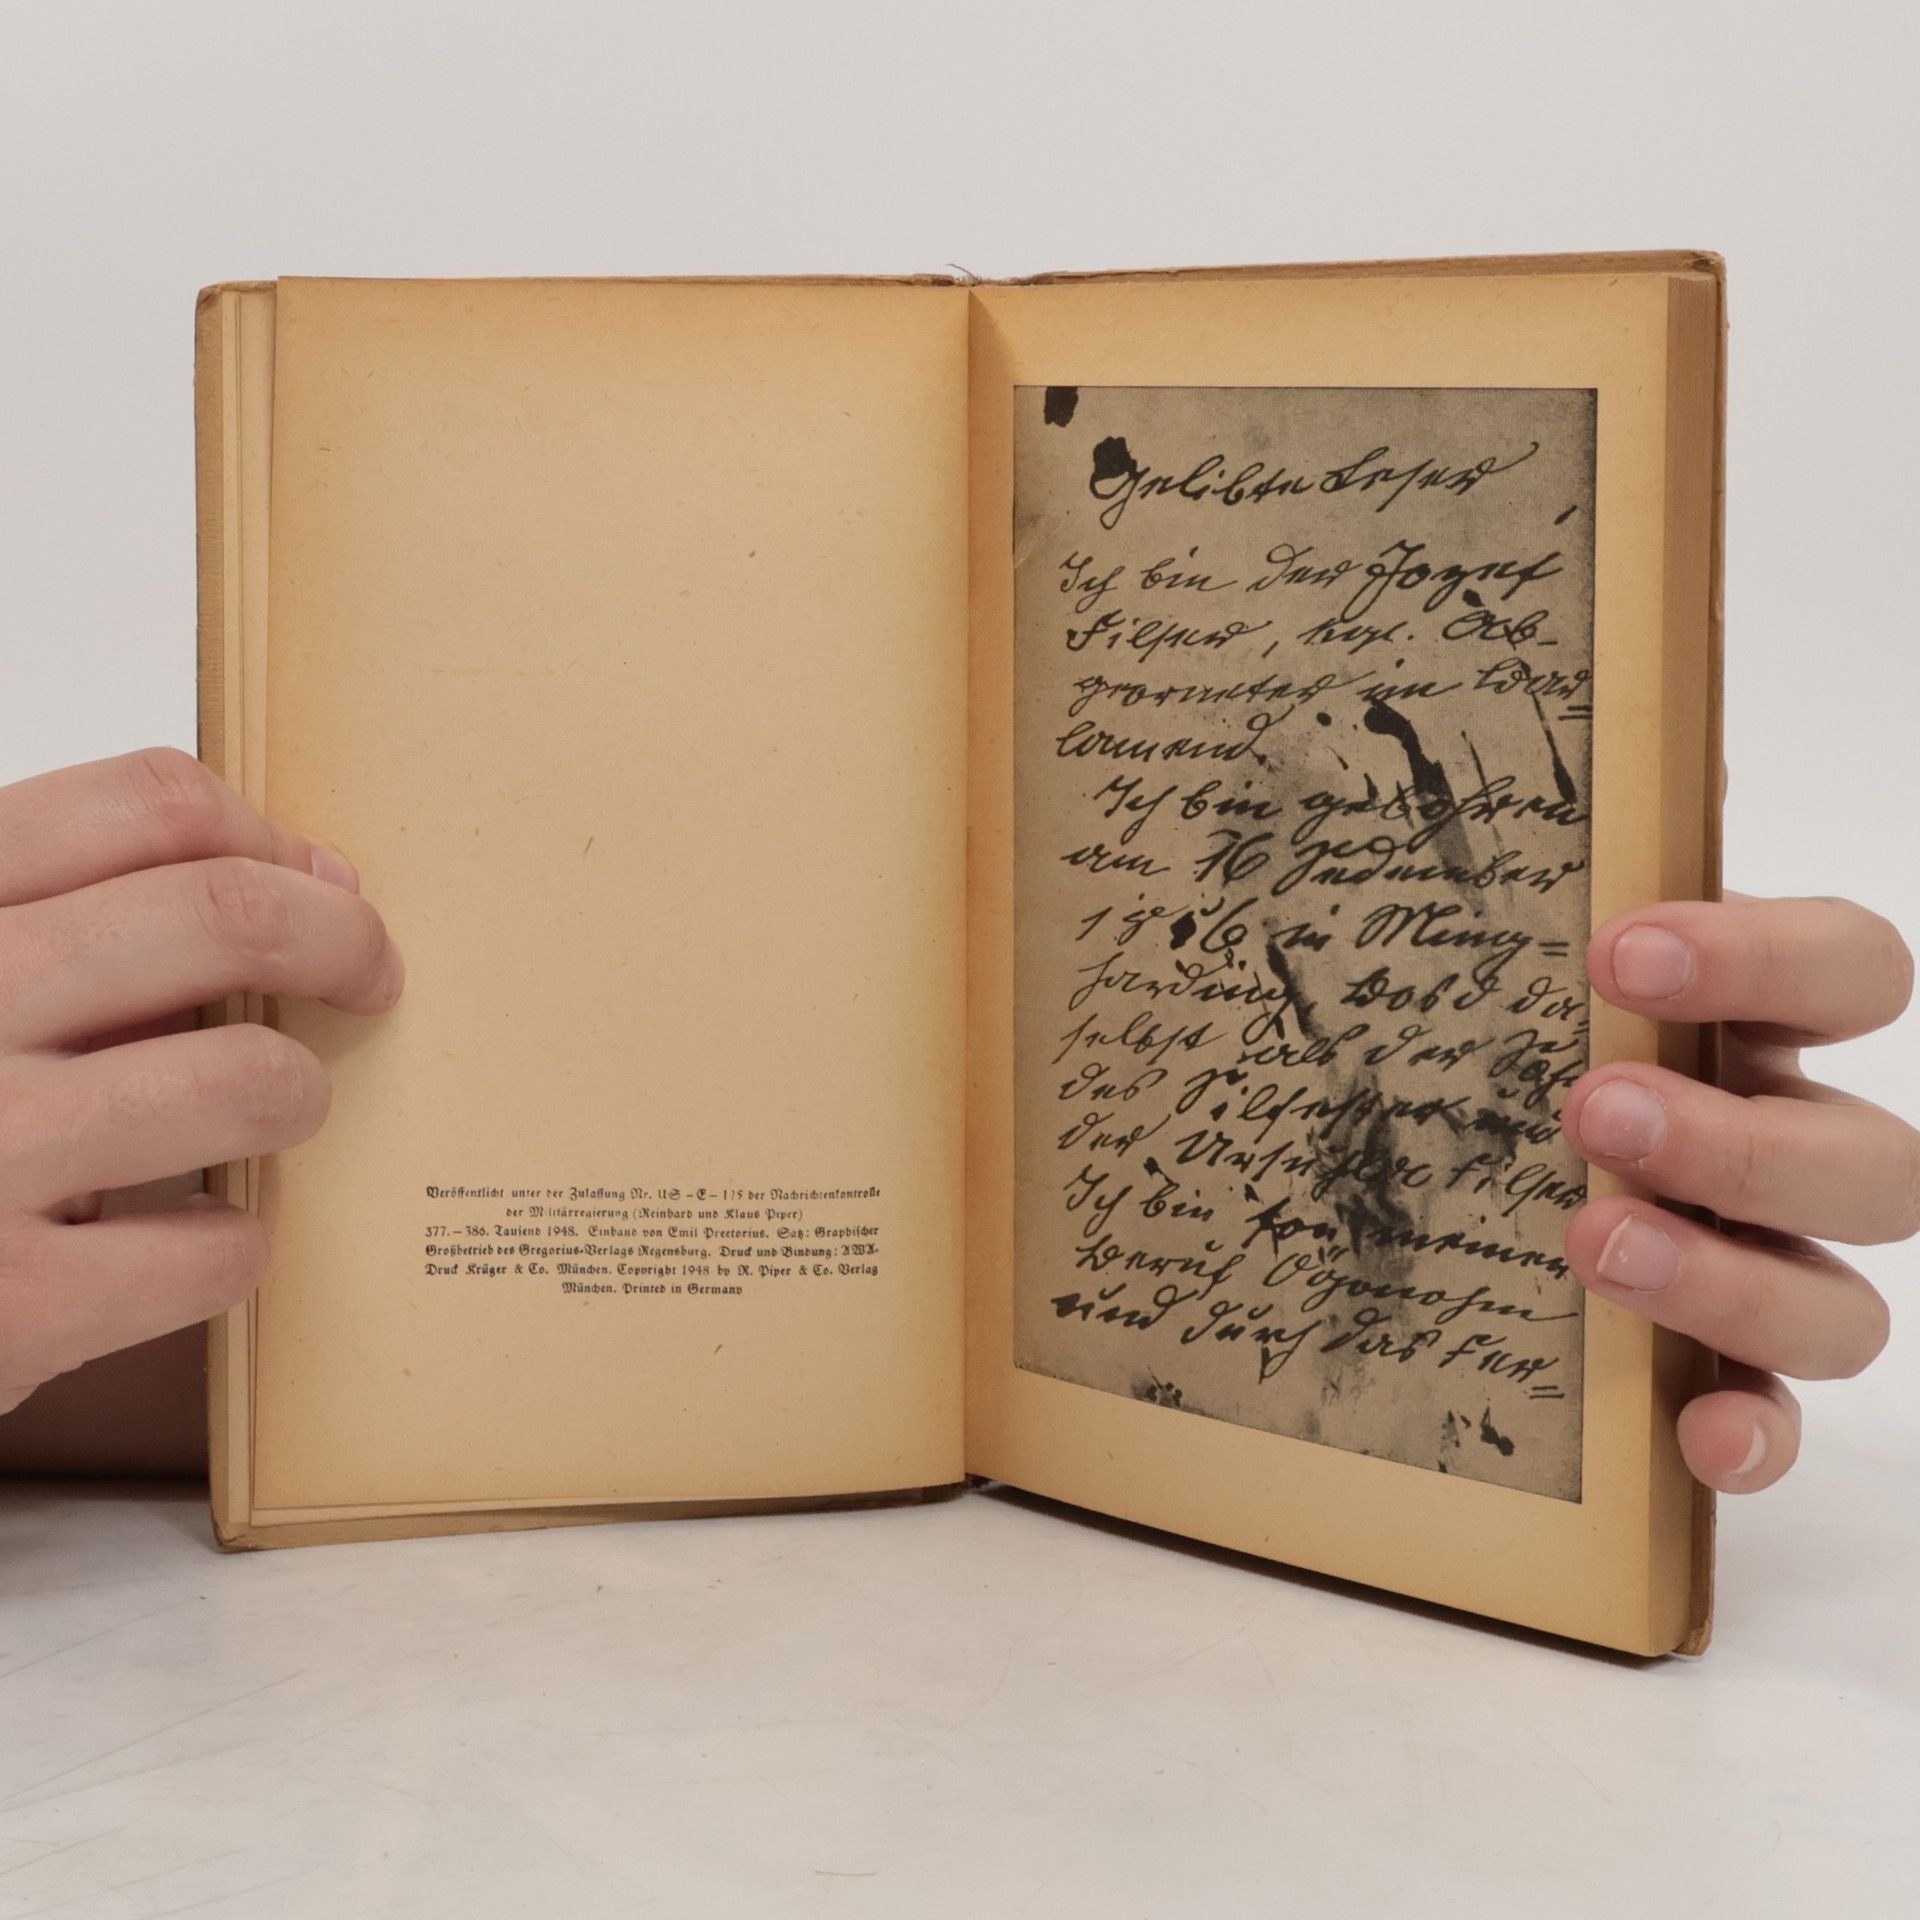 Veröffentlicht unter der Zulassung Nr. US-E-125 der Nachrichtenkontrolle
der Militärregierung (Reinhard und Klaus Piper)
377.–386. Tausend 1948. Einband von Emil Preetorius. Satz: Graphischer
Großbetrieb des Gregorius-Verlags Regensburg. Druck und Bindung: AWA-
Druck Krüger & Co. München. Copyright 1948 by R. Piper & Co. Verlag
München. Printed in Germany
Gelibte Leser,
Ich bin der Jozef
Filser, kgl. Ab-
georneter im Bar=
lamend.
Ich bin gebohren
am 16 Zedember
in Ming=
harding, Bosd da=
selbst als der
des Silfester und
der Ursuhla Filser
Ich bin fon meinen
Beruf Ögonohm
und durch das Fer=